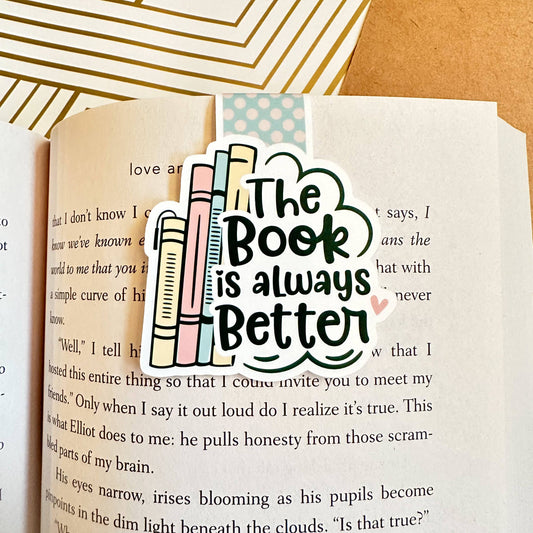 love an
The
Book
is always
Better
that I don't know I c t says, I
know we've known e ans the
world to me that you i hat with
a simple curve of hi never
know.
"Well," I tell hi w that I
hosted this entire thing so that I could invite you to meet my
friends." Only when I say it out loud do I realize it's true. This
is what Elliot does to me: he pulls honesty from those scram-
bled parts of my brain.
His eyes narrow, irises blooming as his pupils become
pinpoints in the dim light beneath the clouds. "Is that true?"